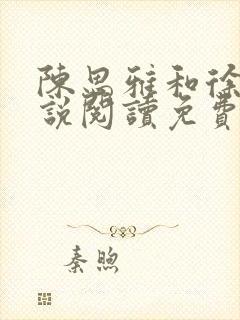 陳思雅和徐
說閱讀免費
秦煦